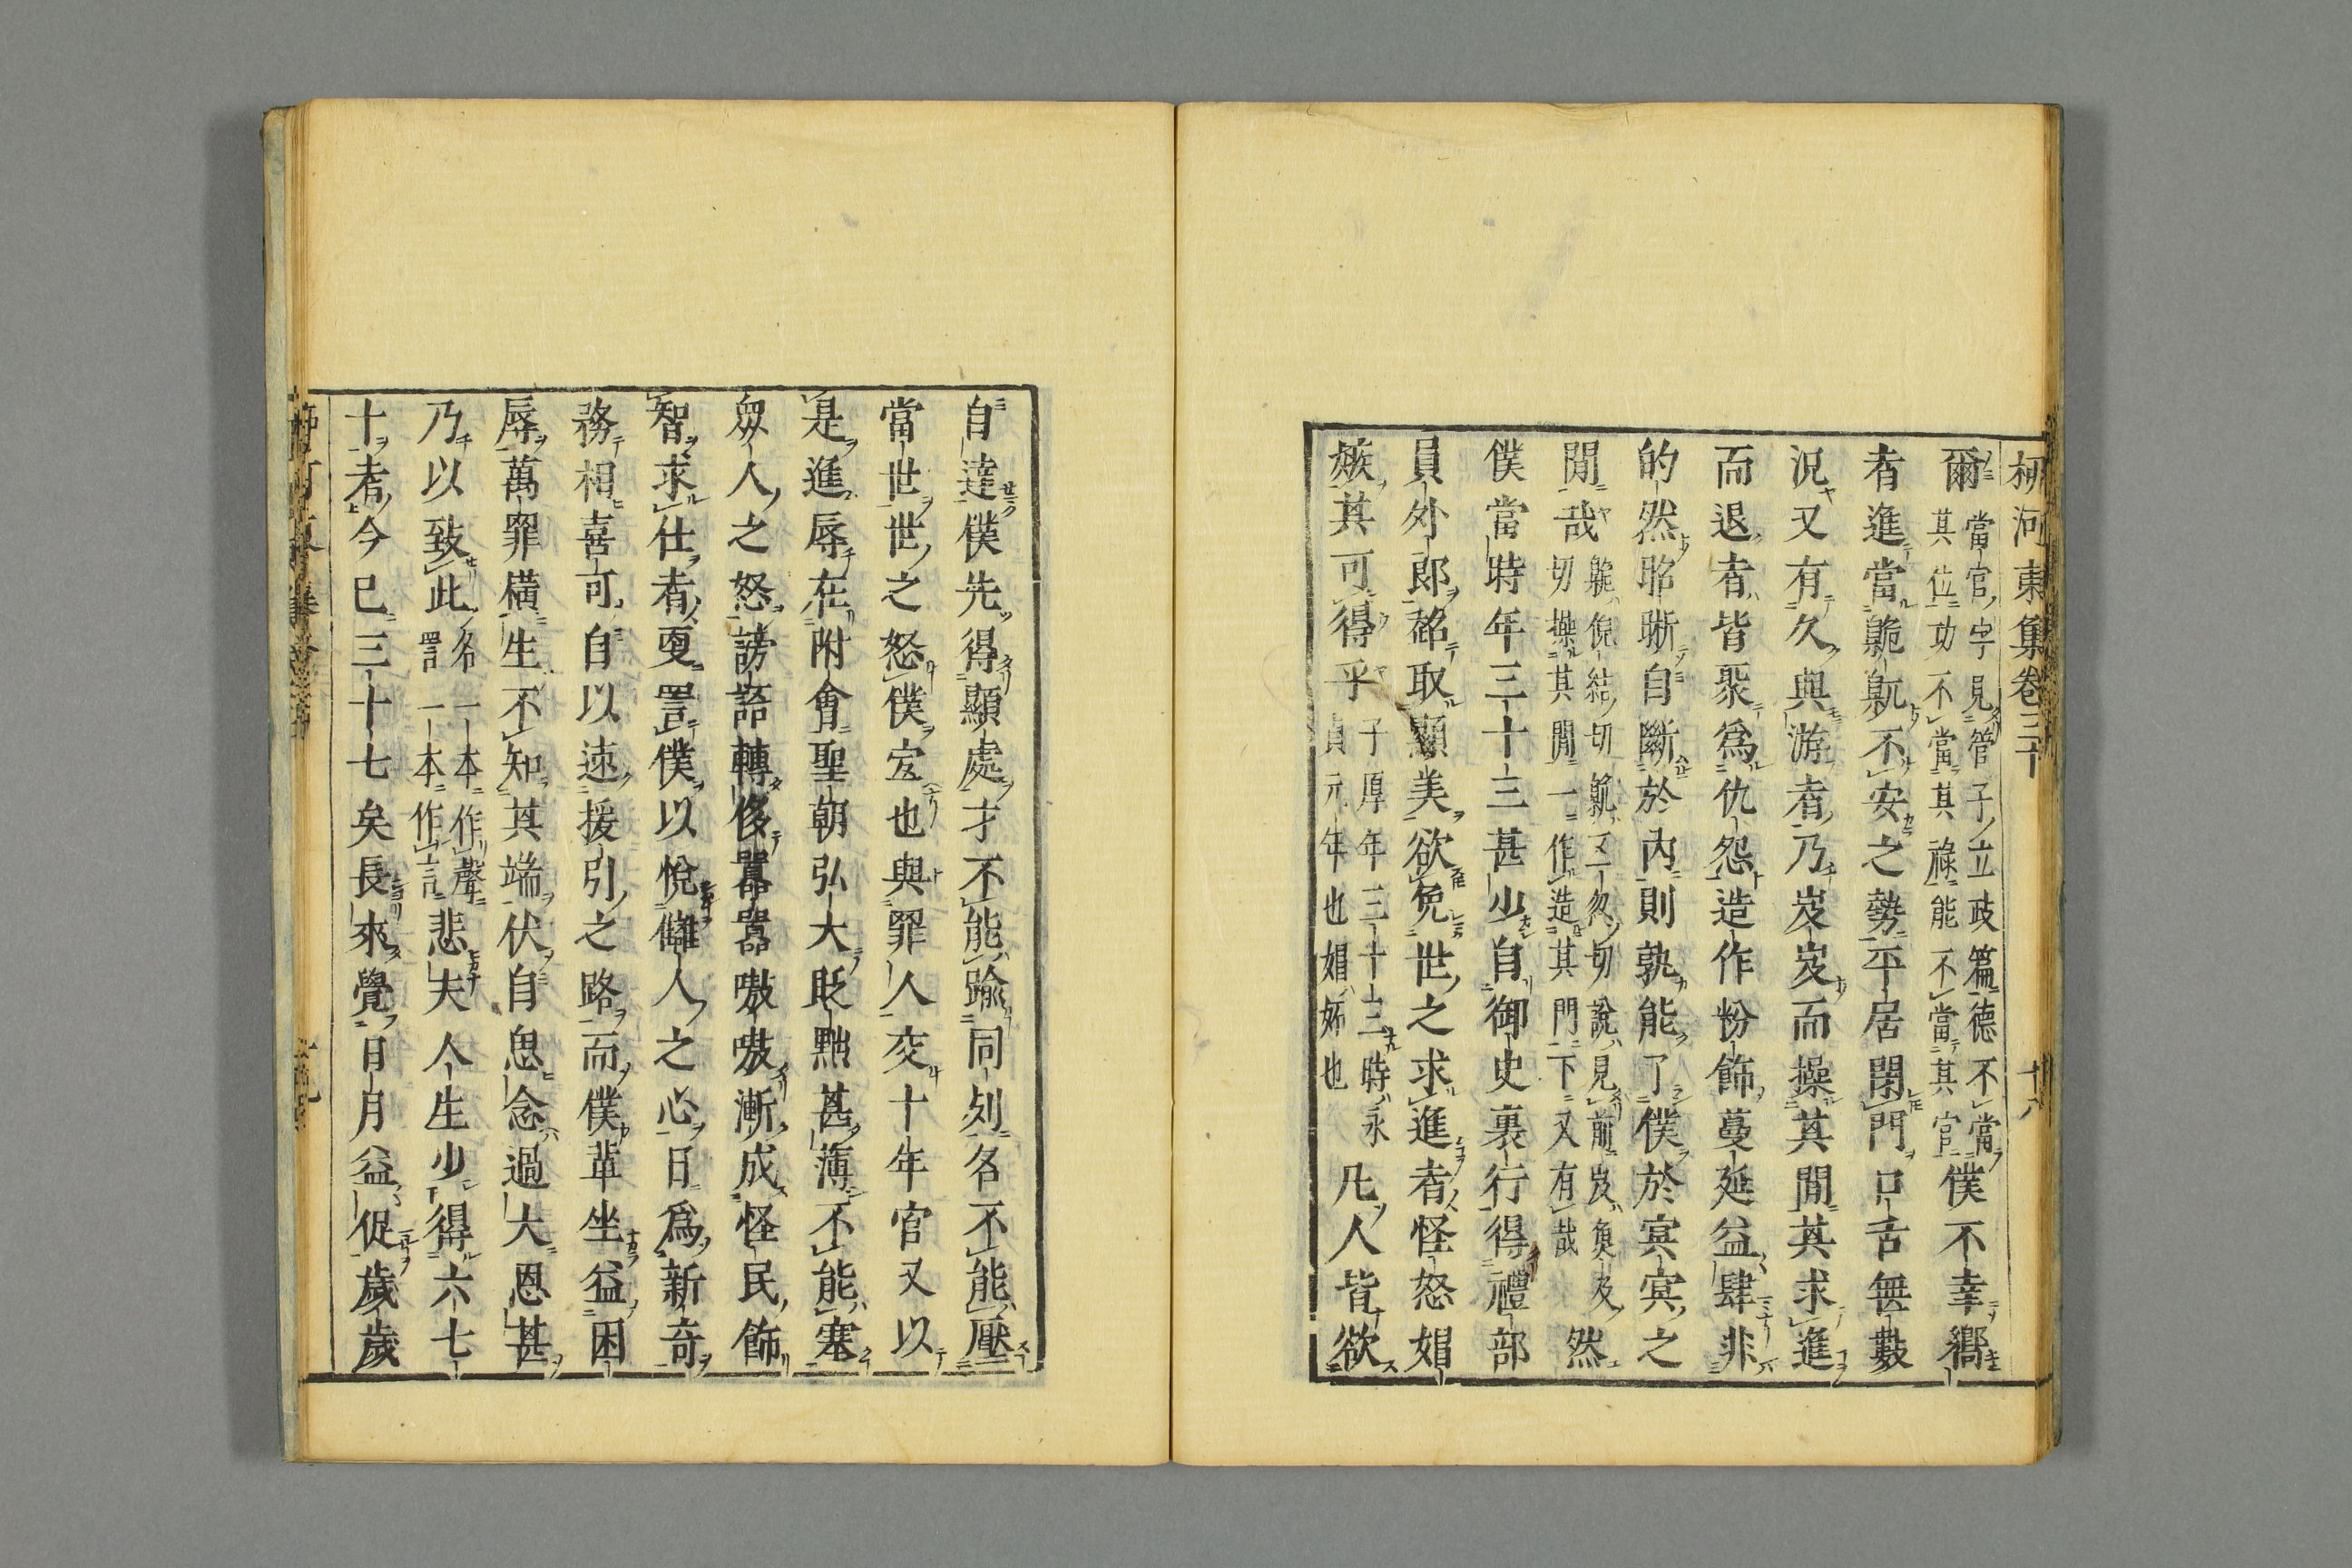 柳河東集卷三十　十八
爾當官字見管子立政篇德不當
其位功不當其祿能不當其官僕不幸嚮
者進當臲卼不安之勢平居閉門口舌無數
況又有久與游者乃岌岌而操其間其求進
而退者皆聚爲仇怨造作粉飾蔓延益肆非
的然昭晰自斷於內則孰能了僕於冥冥之
間哉臲倪結切卼又忽切說見前岌魚及
切操其間一作造其門下又有哉然
僕當時年三十三甚少自御史裏行得禮部
員外郎超取顯美欲免世之求進者怪怒媢
嫉其可得乎子厚年三十三時永
貞元年也媢妬也凡人皆欲
自達僕先得顯處才不能踰同列名不能壓
當世世之怒僕宜也與罪人交十年官又以
是進辱在附會聖朝弘大貶黜甚薄不能塞
衆人之怒謗語轉侈囂囂嗷嗷漸成怪民飾
智求仕者更詈僕以悅讎人之心日爲新奇
務相喜可自以速援引之路而僕輩坐益困
辱萬罪橫生不知其端伏自思念過大恩甚
乃以致此名一本作聲
詈一本作言悲夫人生少得六七
十者今已三十七矣長來覺日月益促歲歲